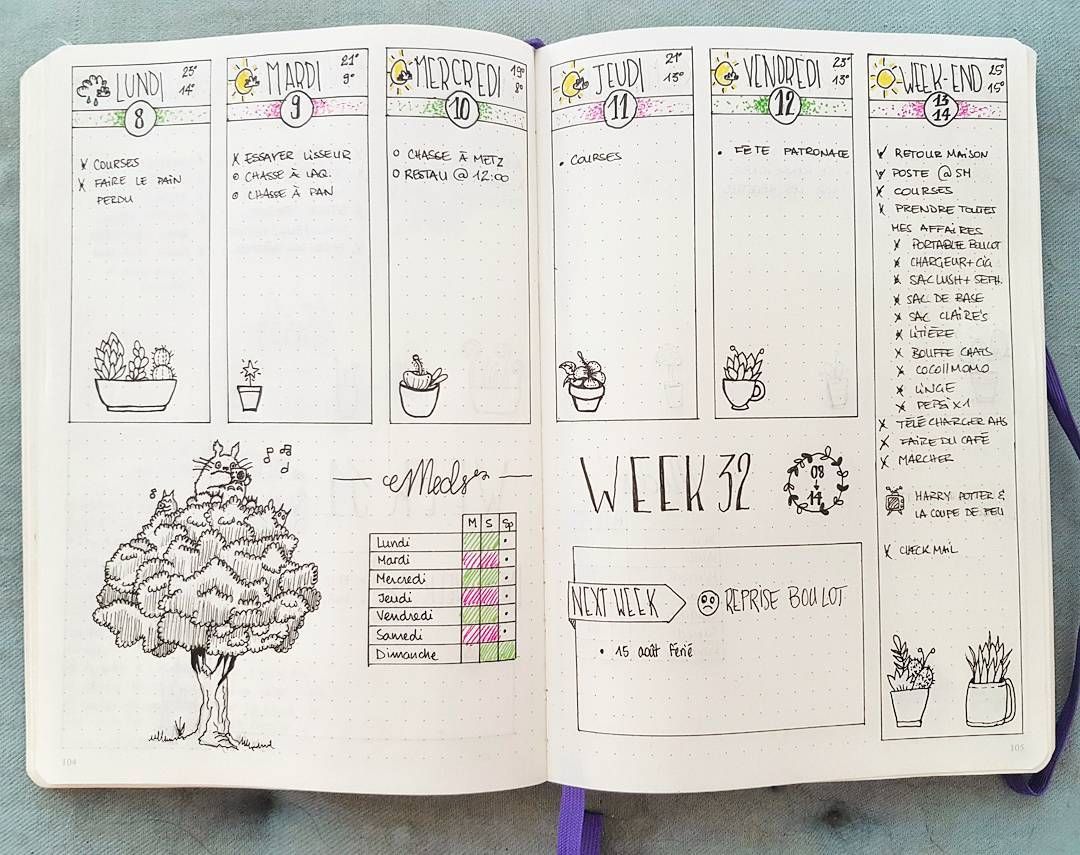 LUNDI
25°
14°
8
X COURSES
X FAIRE LE PAIN
PERDU
MARDI
21°
9°
9
X ESSAYER LISSEUR
O CHASSE À LAQ.
O CHASSE À PAN
MERCREDI
19°
8°
10
O CHASSE À METZ
O RESTAU @ 12:00
JEUDI
21°
13°
11
• COURSES
VENDREDI
23°
13°
12
• FÊTE PATRONALE
WEEK-END
25°
15°
13
14
RETOUR MAISON
POSTE @ SM
X COURSES
X PRENDRE TOUTES
MES AFFAIRES
X PORTABLE BOULOT
X CHARGEUR + CIG
X SAC LUSH + SEPH.
X SAC DE BASE
X SAC CLAIRE'S
X LITIÈRE
X BOUFFE CHATS
X COCO//MOMO
X LINGE
X PEPSI X1
X TÉLÉCHARGER AHS
X FAIRE DU CAFÉ
X MARCHER
HARRY POTTER &
LA COUPE DE FEU
X CHECK MAIL
Meds
M S Sp
Lundi
Mardi
Mercredi
Jeudi
Vendredi
Samedi
Dimanche
WEEK 32
08
14
NEXT WEEK
REPRISE BOULOT
• 15 août Férié
104
105